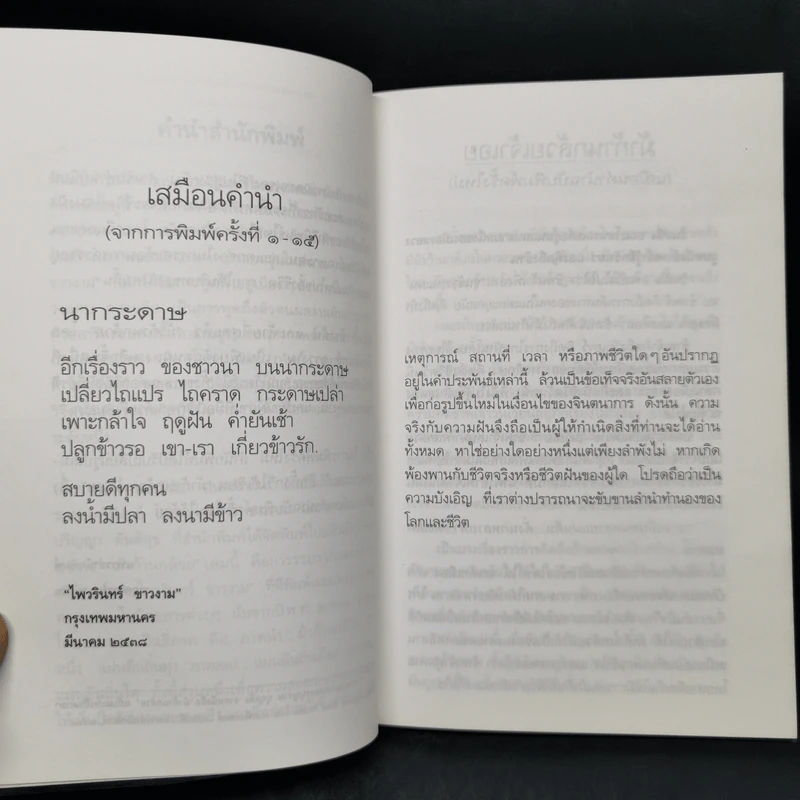 เสมือนคำนำ
(จากการพิมพ์ครั้งที่ ๑-๑๕)
นากระดาษ
อีกเรื่องราว ของชาวนา บนนากระดาษ
เปลี่ยวไถแปร ไถคราด กระดาษเปล่า
เพาะกล้าใจ ฤดูฝัน ค่ำยันเช้า
ปลูกข้าวรอ เขา-เรา เกี่ยวข้าวรัก.
สบายดีทุกคน
ลงน้ำมีปลา ลงนามีข้าว
"ไพวรินทร์ ขาวงาม"
กรุงเทพมหานคร
มีนาคม ๒๕๓๘
เหตุการณ์ สถานที่ เวลา หรือภาพชีวิตใดๆอันปรากฏ
อยู่ในคำประพันธ์เหล่านี้ ล้วนเป็นข้อเท็จจริงอันสลายตัวเอง
เพื่อก่อรูปขึ้นใหม่ในเงื่อนไขของจินตนาการ ดังนั้น ความ
จริงกับความฝันจึงถือเป็นผู้ให้กำเนิดสิ่งที่ท่านจะได้อ่าน
ทั้งหมด หาใช่อย่างใดอย่างหนึ่งแต่เพียงลำพังไม่ หากเกิด
พ้องพานกับชีวิตจริงหรือชีวิตฝันของผู้ใด โปรดถือว่าเป็น
ความบังเอิญ ที่เราต่างปรารถนาจะขับขานลำนำทำนองของ
โลกและชีวิต